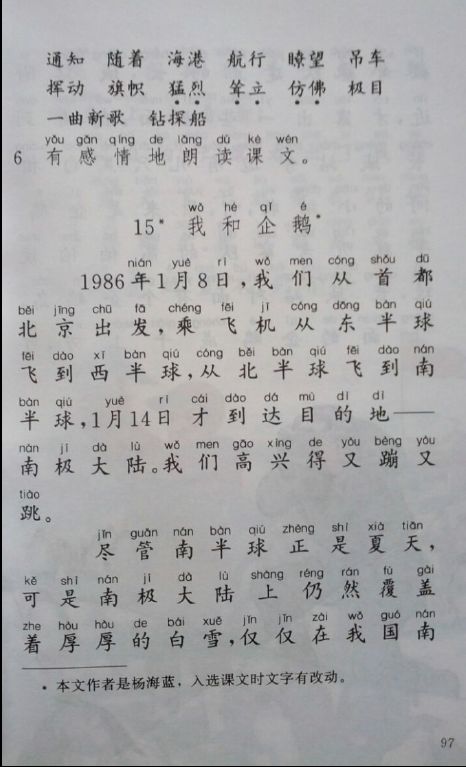 通知 随着 海港 航行 瞭望 吊车
挥动 旗帜 猛烈 耸立 仿佛 极目
一曲新歌 钻探船
yǒu gǎn qíng de lǎng dú kè wén
6 有感情地朗读课文。
wǒ hé qǐ é
15* 我和企鹅*
nián yuè rì wǒ men cóng shǒu dū
1986年1月8日,我们从首都
běi jīng chū fā chéng fēi jī cóng dōng bàn qiú
北京出发,乘飞机从东半球
fēi dào xī bàn qiú cóng běi bàn qiú fēi dào nán
飞到西半球,从北半球飞到南
bàn qiú yuè rì cái dào dá mù dì dì
半球,1月14日才到达目的地——
nán jí dà lù wǒ men gāo xìng de yòu bèng yòu
南极大陆。我们高兴得又蹦又
tiào
跳。
jǐn guǎn nán bàn qiú zhèng shì xià tiān
尽管南半球正是夏天,
kě shì nán jí dà lù shàng réng rán fù gài
可是南极大陆上仍然覆盖
zhe hòu hòu de bái xuě jǐn jǐn zài wǒ guó nán
着厚厚的白雪,仅仅在我国南
* 本文作者是杨海蓝,入选课文时文字有改动。
97